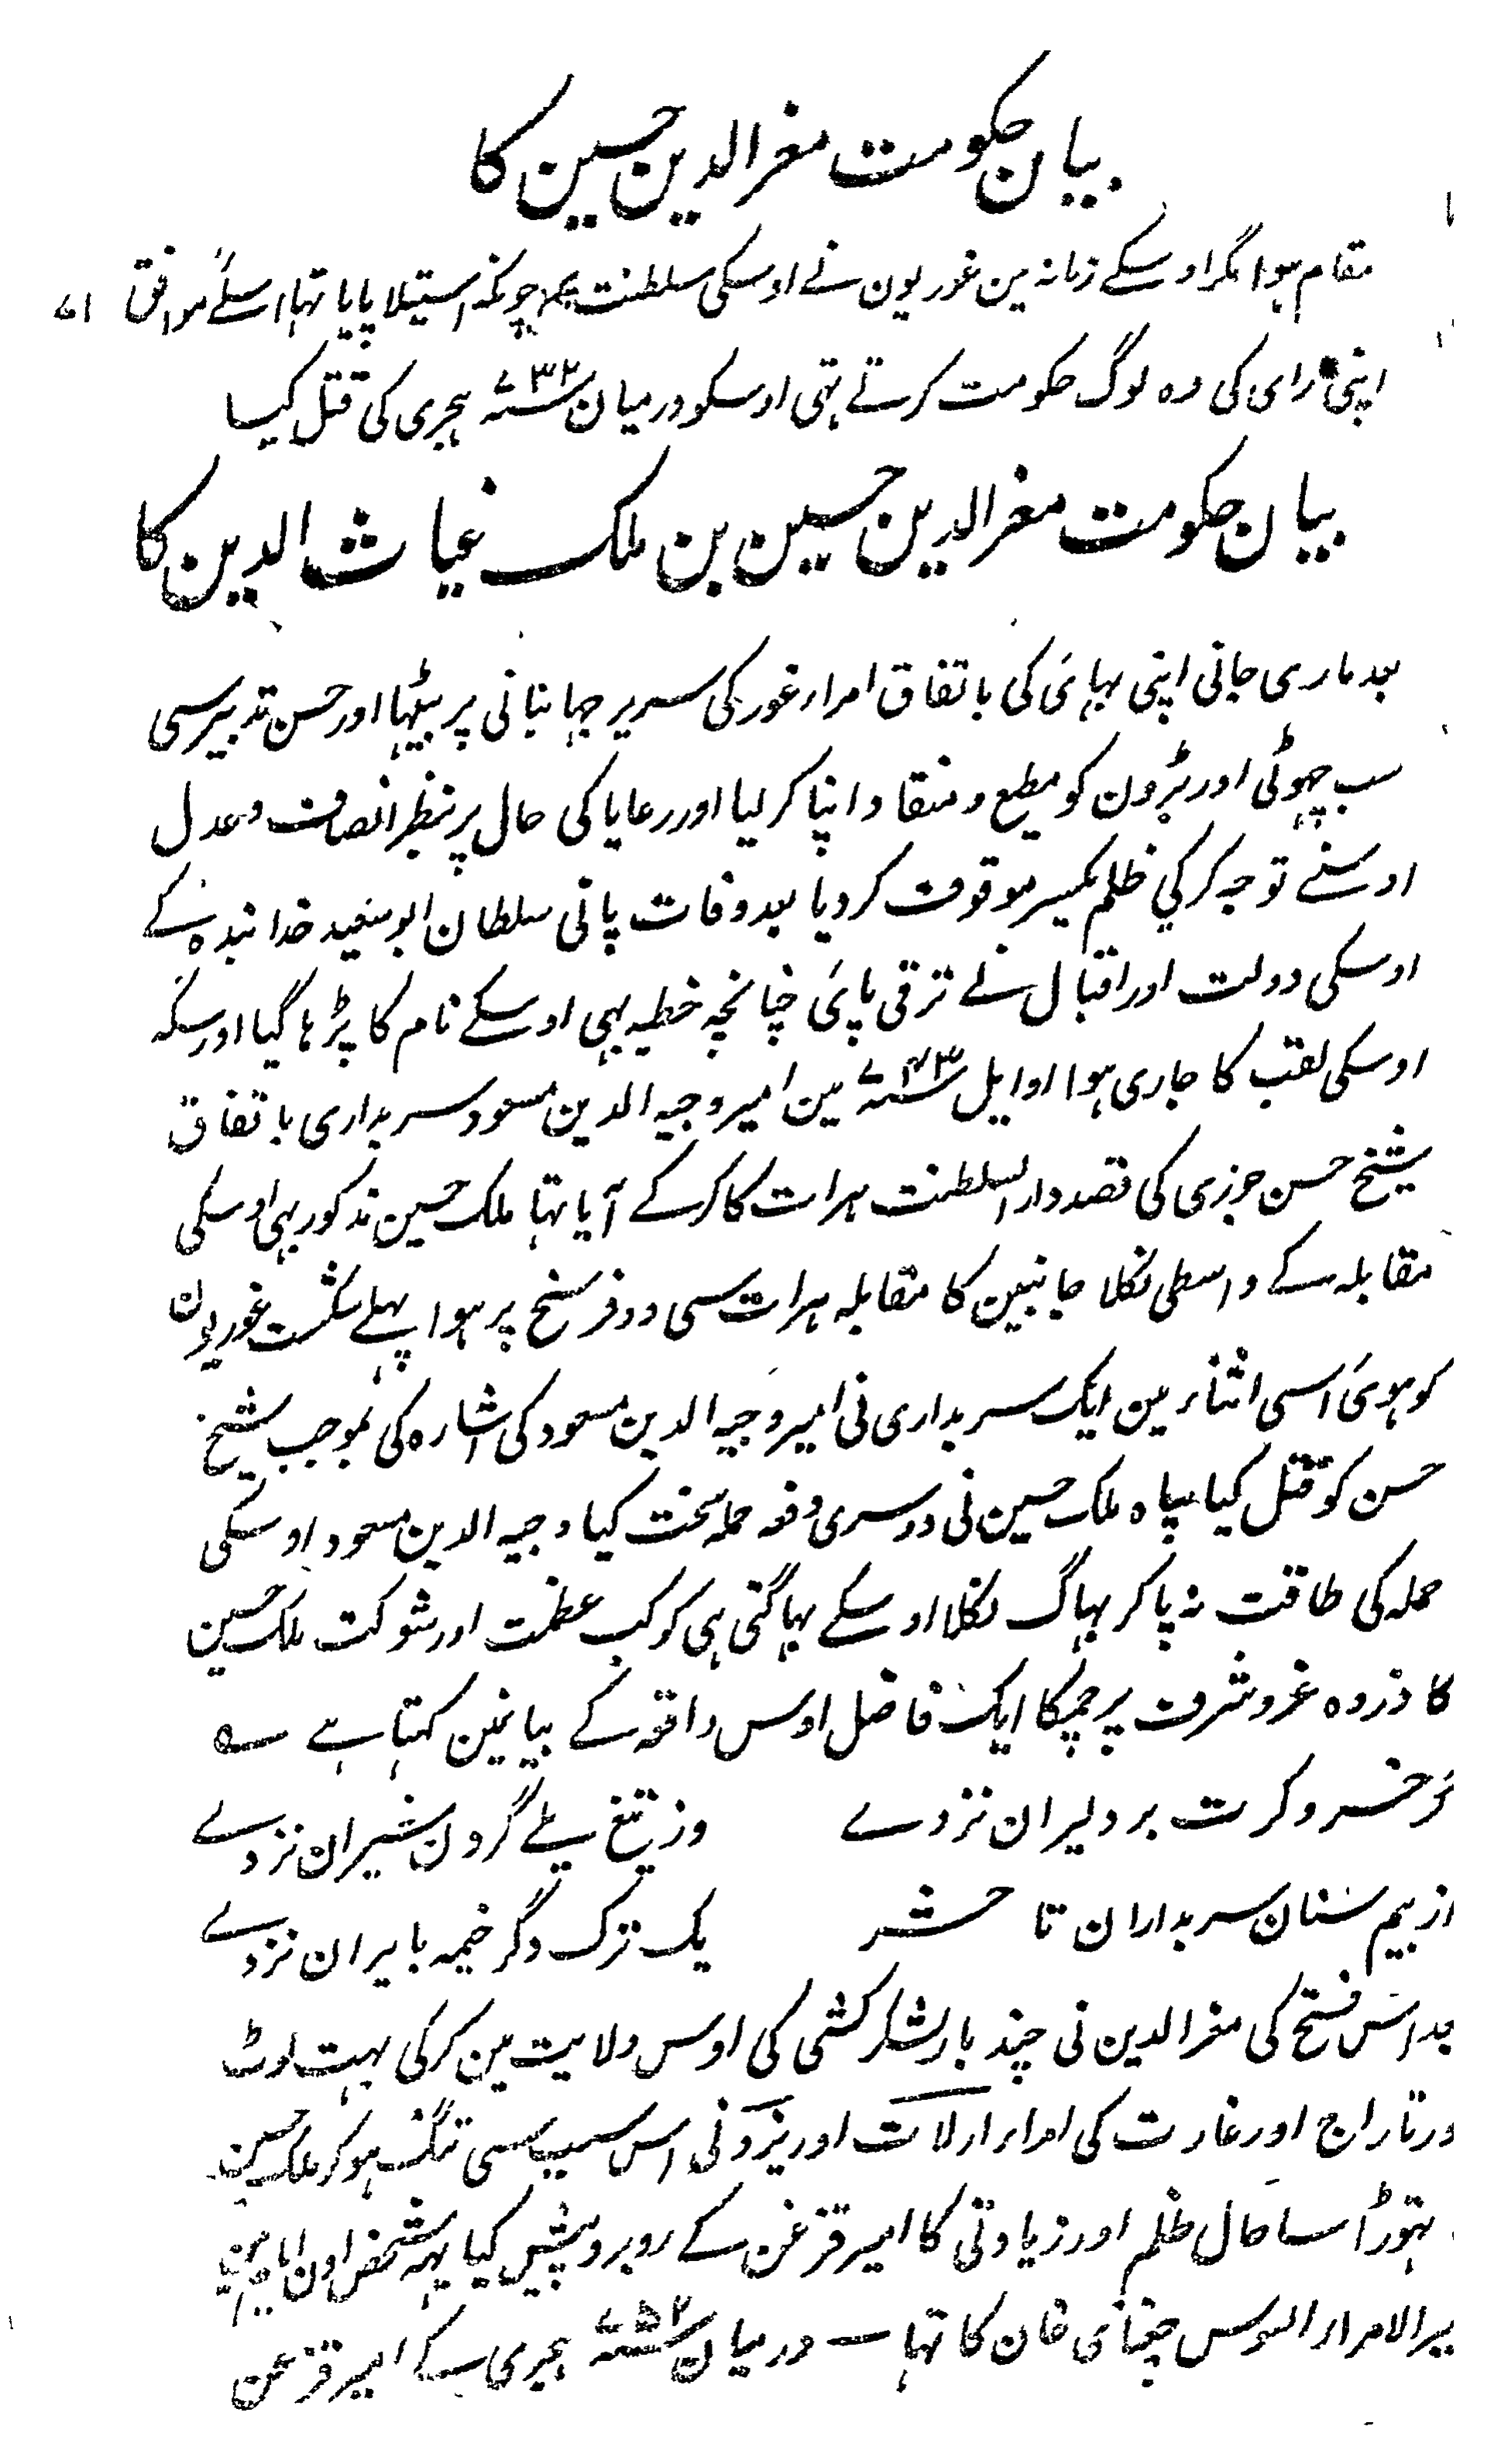 بیان حکومت مغرالدین حسین کا
مقام ہوا مگر اوسکے زمانہ مین غوریون نے اوسکی سلطنت چونکہ استیلا پایا تہا اسلئے موافق
اپنی رای کی وہ لوگ حکومت کرتے تہی اوسکو درمیان ۷۳۲ سنہ ہجری کی قتل کیا
بیان حکومت مغرالدین حسین بن ملک غیاث الدین کا
بعد ماری جانی اپنی بہائی کی باتفاق امراء غور کی سریر جہانبانی پر بیٹہا اور حسن تدبیر سی
سب چہوٹی اور بڑون کو مطیع و منقاد اپنا کر لیا اور رعایا کی حال پر بنظر انصاف و عدل
اوسنے توجہ کرکی ظلم یکسر موقوف کردیا بعد وفات پانی سلطان ابوسعید خدا بندہ کے
اوسکی دولت اور اقبال نے ترقی پائی چنانچہ خطبہ بہی اوسکے نام کا پڑہا گیا اور سکہ
اوسکی لقب کا جاری ہوا اوایل ۷۴۳ سنہ مین امیر وجیہ الدین مسعود سربداری باتفاق
شیخ حسن جوزی کی قصد دار السلطنت ہرات کا کرکے آیا تہا ملک حسین مذکور بہی اوسکی
مقابلہ کے واسطی نکلا جانبین کا مقابلہ ہرات سی دو فرسخ پر ہوا پہلے شکست غوریون
کو ہوئی اسی اثناء مین ایک سربداری نی امیر وجیہ الدین مسعود کی اشارہ کی بموجب شیخ
حسن کو قتل کیا سپاہ ملک حسین نی دوسری دفعہ حملہ سخت کیا وجیہ الدین مسعود اوسکی
حملہ کی طاقت نہ پاکر بہاگ نکلا اوسکے بہاگتی ہی کوکب عظمت اور شوکت ملک حسین
کا ذروہ عز و شرف پر چمکا ایک فاضل اوس واقعہ کے بیانمین کہتا ہے ؎
گر خسرو کرت بر دلیران نزدے وز تیغ یلے گردن شیران نزدے
از بیم سنان سربداران تا حشر یک ترک دگر خیمہ بایران نزدے
بعد اس فتح کی مغرالدین نی چند بار لشکر کشی کی اوس ولایت مین کرکی بہت لوٹ
ور تاراج اور غارت کی امراء ارلات اور نی اس سبب سی تنگ ہوکر ملک حسین
تہوڑا سا حال ظلم اور زیادتی کا امیر قزغن کے روبرو پیش کیا یہہ شخص اون ایام مین
یر الامراء الوس چغتای خان کا تہا — درمیان ۷۵۲ سنہ ہجری کے امیر قزغن